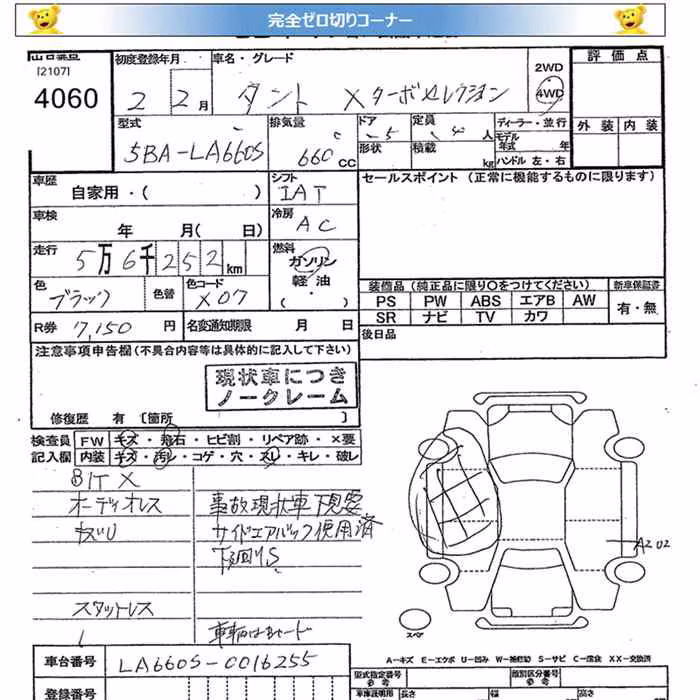 完全ゼロ切りコーナー
出品番号 初度登録年月 車名・グレード 評価点
[2107] 2WD
4060 2 2月 タント Xターボセレクション 4WD
型式 排気量 ドア 定員 ディーラー・並行 外装 内装
5BA-LA660S 660 CC 5 4人 モデル年式 年
形状 積載 kg ハンドル 左・右
車歴 自家用・( ) シフト IAT セールスポイント (正常に機能するものに限ります)
車検 年 月( 日) 冷房 AC
走行 5万6千252km 燃料 ガソリン 軽油・( )
色 ブラック 色替 色コード X07 装備品(純正品に限り○をつけてください) 新車保証書
PS PW ABS エアB AW 有・無
SR ナビ TV カワ
R券 7,150 円 名変通知期限 月 日 後日品
注意事項申告欄(不具合内容等は具体的に記入して下さい)
現状車につき
ノークレーム
修復歴 有 [箇所 ]
検査員 FW キズ・飛石・ヒビ割・リペア跡・×要
記入欄 内装 キズ・汚レ・コゲ・穴・スレ・キレ・破レ
BIT X
オーディオレス 事故現状車下見要
サイドエアバック使用済
A2 U2
スタットレス
スペア
A-キズ E-エクボ U-凹み W-補修跡 S-サビ C-腐食 XX-交換済
車台番号 LA660S-0016255 型式指定番号 参考 類別区分番号 参考
登録番号 車庫証明用 長さ 幅 高さ